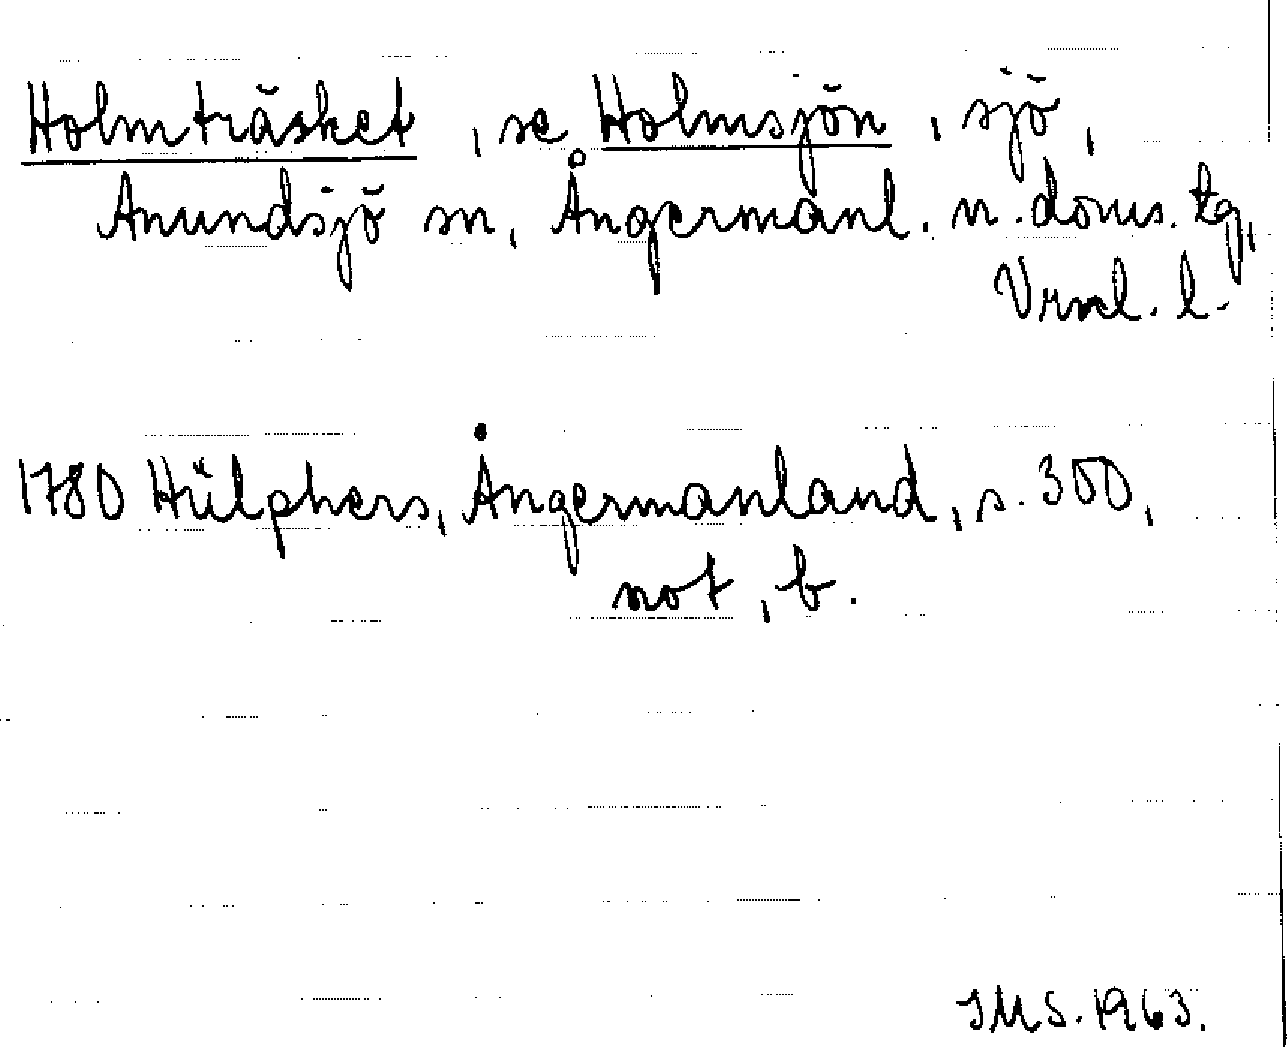 Holmträsket, se Holmsjön, sjö,
Anundsjö sn, Ångermanl. n. doms. tg,
Vrnl. l.
1780 Hülphers, Ångermanland, s. 300,
not, b.
JMS. 1963.